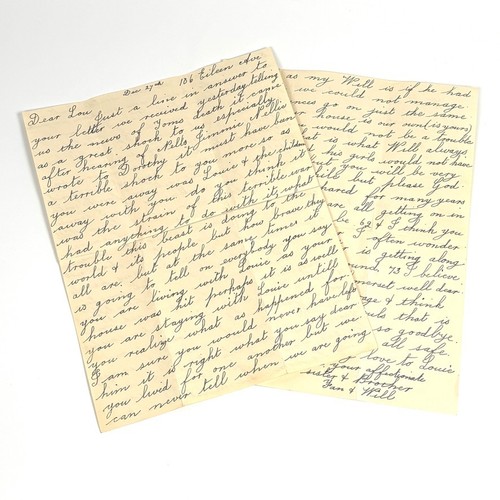 Dec 27th 186 Eileen Ave
Dear Lou, Just a line in answer to
your letter we recived yesterday telling
us the news of Toms death it came
as a great shock to us especially
after hearing of Nells, Linnie
wrote to Dorothy it must have been
a terrible shock to you more so as
you were away was Louie & the children
away with you do you think it
was the strain of this terrible war
had anything to do with it, what
trouble this beast is doing to the
world & its people but how brave they
all are. but at the same time it
is going to tell on everybody you say
you are living with Louie as your
house was hit perhaps it is as well
you are staying with Louie untill
you realize what as happened for
I am sure you would never have left
him it is right what you say dear
you lived for one another but we
can never tell when we are going
as my Will is if he had
we could not manage.
go on just the same
house our own (is yours)
would not be a trouble
is what Will always
his girls would not have
but you will be very
while but please God
for many years
are all getting on in
be 62 & I think you
I often wonder
is getting along
73 I believe
interest well dear
& think
that is
so goodbye.
all safe
love to Louie
your affectionate
sister & Brother
Fan & Will